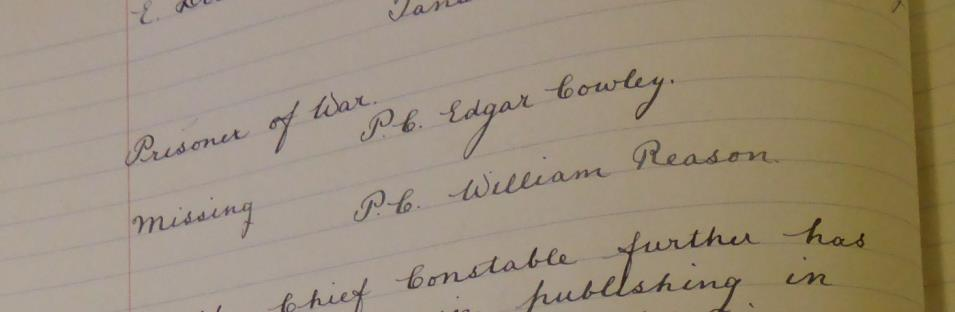 E.
Prisoner of War. P.C. Edgar Cowley.
Missing P.C. William Reason.
Chief Constable further has
in publishing in